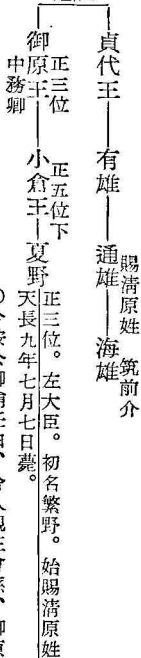 貞代王 有雄 通雄 賜清原姓 海雄 筑前介
御原王 正三位 中務卿 小倉王 正五位下 夏野
正三位。左大臣。初名繁野。始賜清原姓
天長九年七月七日薨。